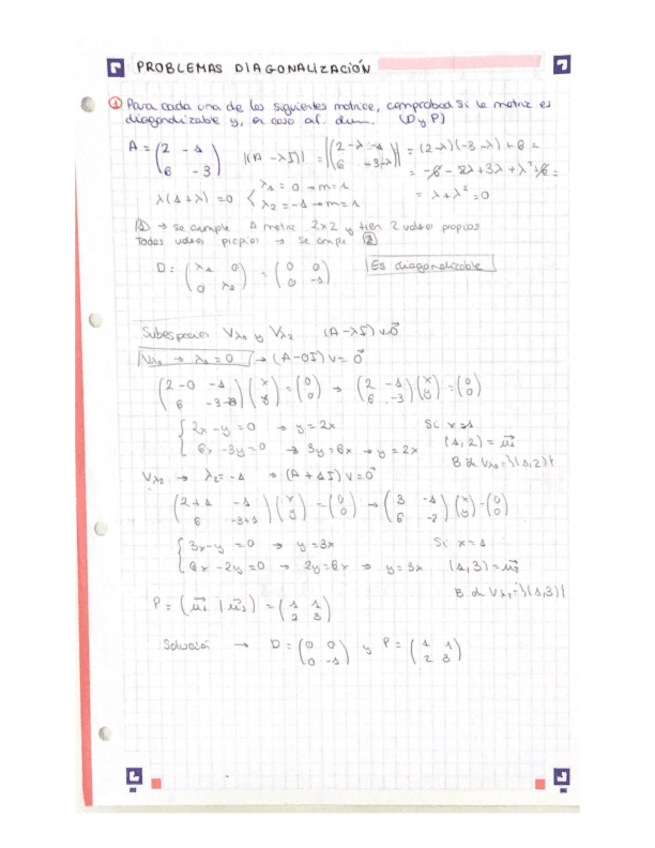 PROBLEMAS DIAGONALIZACIÓN
① Para cada una de las siguientes matrices, comprobad si la matriz es
diagonalizable y, en caso af. dum. (D y P)
A = (2 -1; 6 -3) |(A - λI)| = |(2-λ -1; 6 -3-λ)| = (2-λ)(-3-λ) + 6 =
= -6 - 2λ + 3λ + λ² + 6 =
= λ + λ² = 0
λ(1+λ) = 0 { λ₁ = 0 → m=1
λ₂ = -1 → m=1
1 → se cumple A matriz 2x2 y tien 2 valores propios
Todos valores propios → se cumple 2
D = (λ₁ 0; 0 λ₂) = (0 0; 0 -1) Es diagonalizable
Subespacios Vλ₁ y Vλ₂ (A - λI) v = 0⃗
Vλ₁ → λ₁ = 0 → (A - 0I) v = 0⃗
(2-0 -1; 6 -3-0)(x; y) = (0; 0) → (2 -1; 6 -3)(x; y) = (0; 0)
{ 2x - y = 0 → y = 2x Si x=1
6x - 3y = 0 → 3y = 6x → y = 2x (1, 2) = u⃗₁
B de Vλ₁ = {(1,2)}
Vλ₂ → λ₂ = -1 → (A + 1I) v = 0⃗
(2+1 -1; 6 -3+1)(x; y) = (0; 0) → (3 -1; 6 -2)(x; y) = (0; 0)
{ 3x - y = 0 → y = 3x Si x = 1
6x - 2y = 0 → 2y = 6x → y = 3x (1, 3) = u⃗₂
B de Vλ₂ = {(1,3)}
P = (u⃗₁ | u⃗₂) = (1 1; 2 3)
Solución → D = (0 0; 0 -1) y P = (1 1; 2 3)